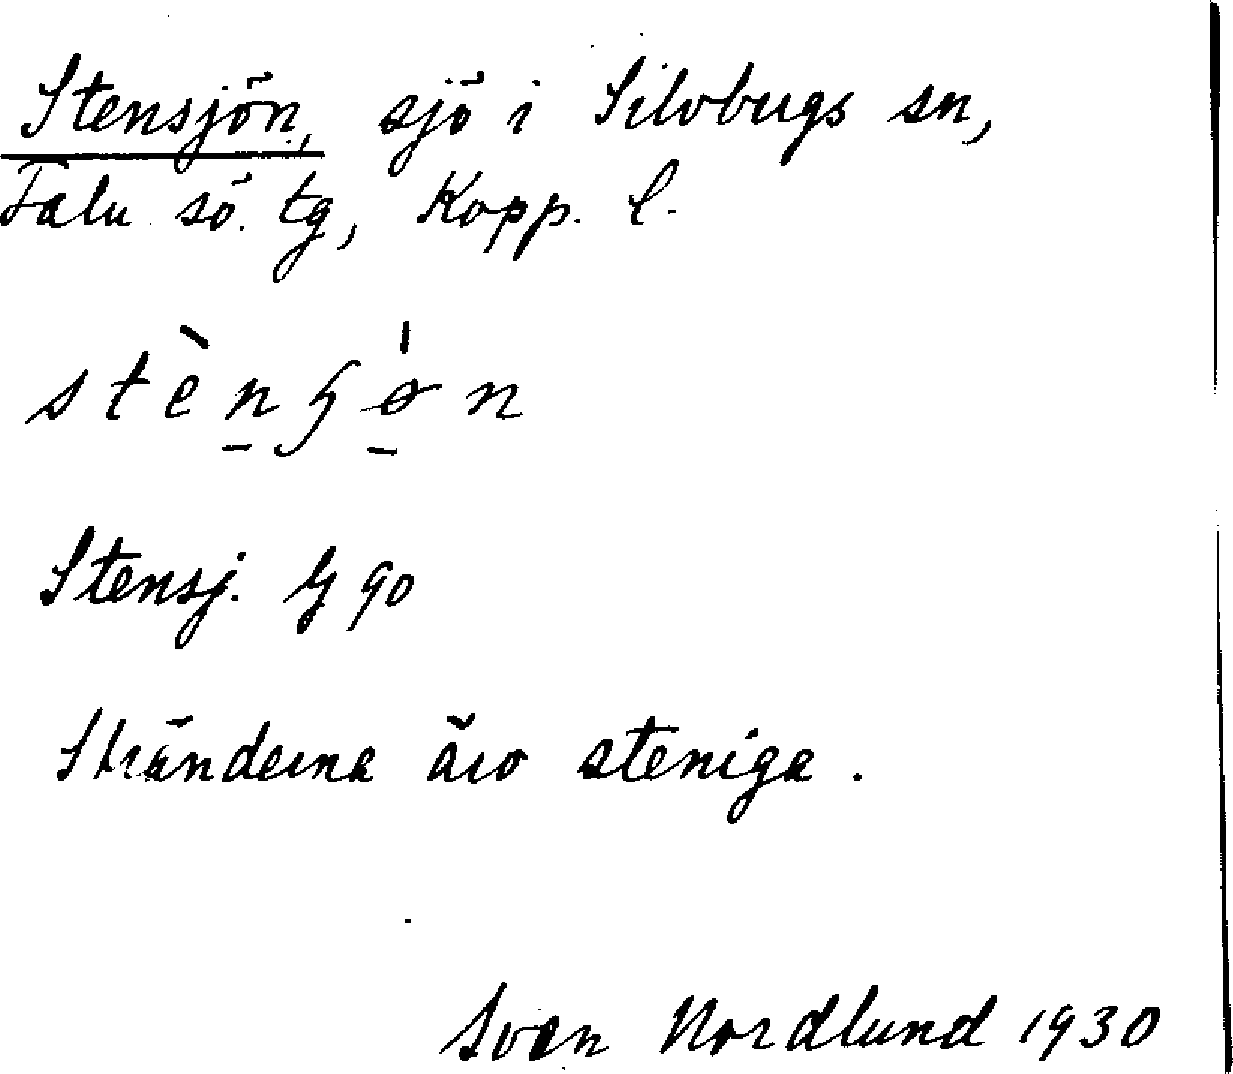 Stensjön, sjö i Silvbergs sn,
Falu sö. tg, Kopp. l.
stènʃøn
Stensj. G 90
Stränderna äro steniga.
Sven Nordlund 1930